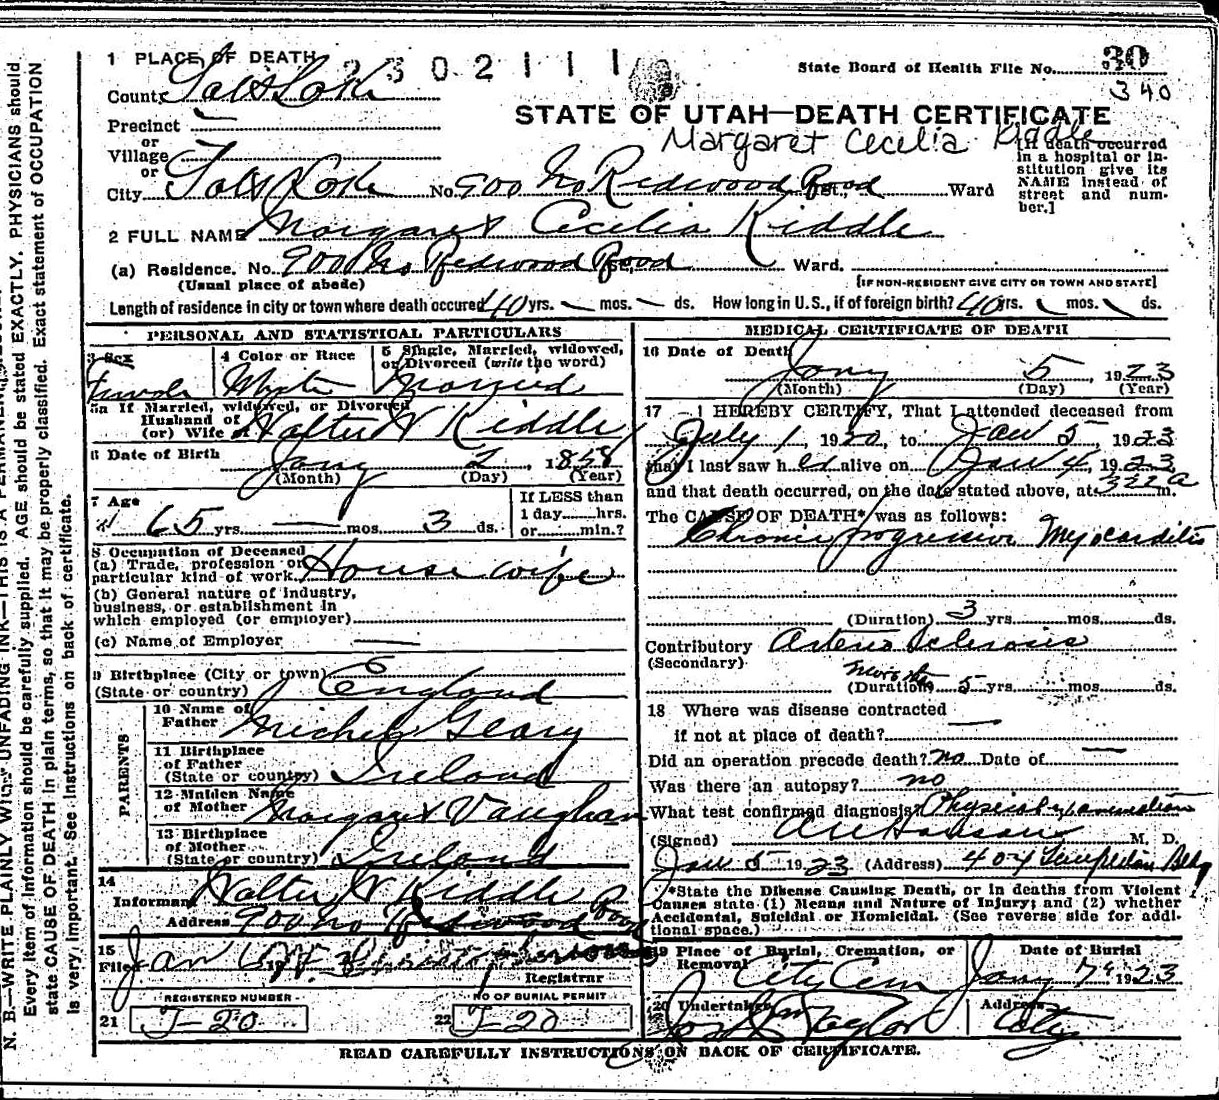 1 PLACE OF DEATH
2 3 0 2 1 1 1
State Board of Health File No. 30
340
County Salt Lake
STATE OF UTAH—DEATH CERTIFICATE
Margaret Cecelia Kiddle
Precinct
or
Village
or
City Salt Lake No. 900 No Redwood Road St., Ward
[If death occurred
in a hospital or in-
stitution give its
NAME instead of
street and num-
ber.]
2 FULL NAME Margaret Cecilia Kiddle
(a) Residence. No. 900 No Redwood Road St., Ward.
(Usual place of abode)
[IF NON-RESIDENT GIVE CITY OR TOWN AND STATE]
Length of residence in city or town where death occured 40 yrs. — mos. — ds. How long in U. S., if of foreign birth? 40 yrs. mos. ds.
PERSONAL AND STATISTICAL PARTICULARS
3 Sex
Female
4 Color or Race
White
5 Single, Married, widowed,
or Divorced (write the word)
Married
5a If Married, widowed, or Divorced
Husband of
(or) Wife of Walter W Kiddle
6 Date of Birth Jany 2, 1858
(Month) (Day) (Year)
7 Age
65 yrs. — mos. 3 ds.
If LESS than
1 day hrs.
or min.?
8 Occupation of Deceased
(a) Trade, profession or
particular kind of work Housewife
(b) General nature of industry,
business, or establishment in
which employed (or employer)
(c) Name of Employer —
9 Birthplace (City or town)
(State or country) England
PARENTS
10 Name of
Father Michel Geary
11 Birthplace
of Father
(State or country) Ireland
12 Maiden Name
of Mother Margaret Vaughan
13 Birthplace
of Mother
(State or country) Ireland
14
Informant Walter W Kiddle
Address 900 No Redwood Road
15
Filed Jan 6
Registrar
REGISTERED NUMBER
21 J-20
NO OF BURIAL PERMIT
22 J-20
MEDICAL CERTIFICATE OF DEATH
16 Date of Death
Jany 5, 1923
(Month) (Day) (Year)
17 I HEREBY CERTIFY, That I attended deceased from
July 1, 1920, to Jan 5, 1923
that I last saw her alive on Jan 4, 1923
and that death occurred, on the date stated above, at 322 a m.
The CAUSE OF DEATH* was as follows:
Chronic progressive Myocarditis
(Duration) 3 yrs. mos. ds.
Contributory Arterio Sclerosis
(Secondary)
(Duration) 5 yrs. mos. ds.
18 Where was disease contracted
if not at place of death? —
Did an operation precede death? no Date of —
Was there an autopsy? no
What test confirmed diagnosis? Physical examination
(Signed) M. D.
Jan 5 1923 (Address) 404 Templeton Bldg
*State the Disease Causing Death, or in deaths from Violent
Causes state (1) Means and Nature of Injury; and (2) whether
Accidental, Suicidal or Homicidal. (See reverse side for addi-
tional space.)
19 Place of Burial, Cremation, or
Removal
City Cem
Date of Burial
Jany 7" 1923
20 Undertaker
Taylor
Address
City
READ CAREFULLY INSTRUCTIONS ON BACK OF CERTIFICATE.
N. B.—WRITE PLAINLY WITH UNFADING INK—THIS IS A PERMANENT
Every item of information should be carefully supplied. AGE should be stated EXACTLY. PHYSICIANS should
state CAUSE OF DEATH in plain terms, so that it may be properly classified. Exact statement of OCCUPATION
is very important. See instructions on back of certificate.